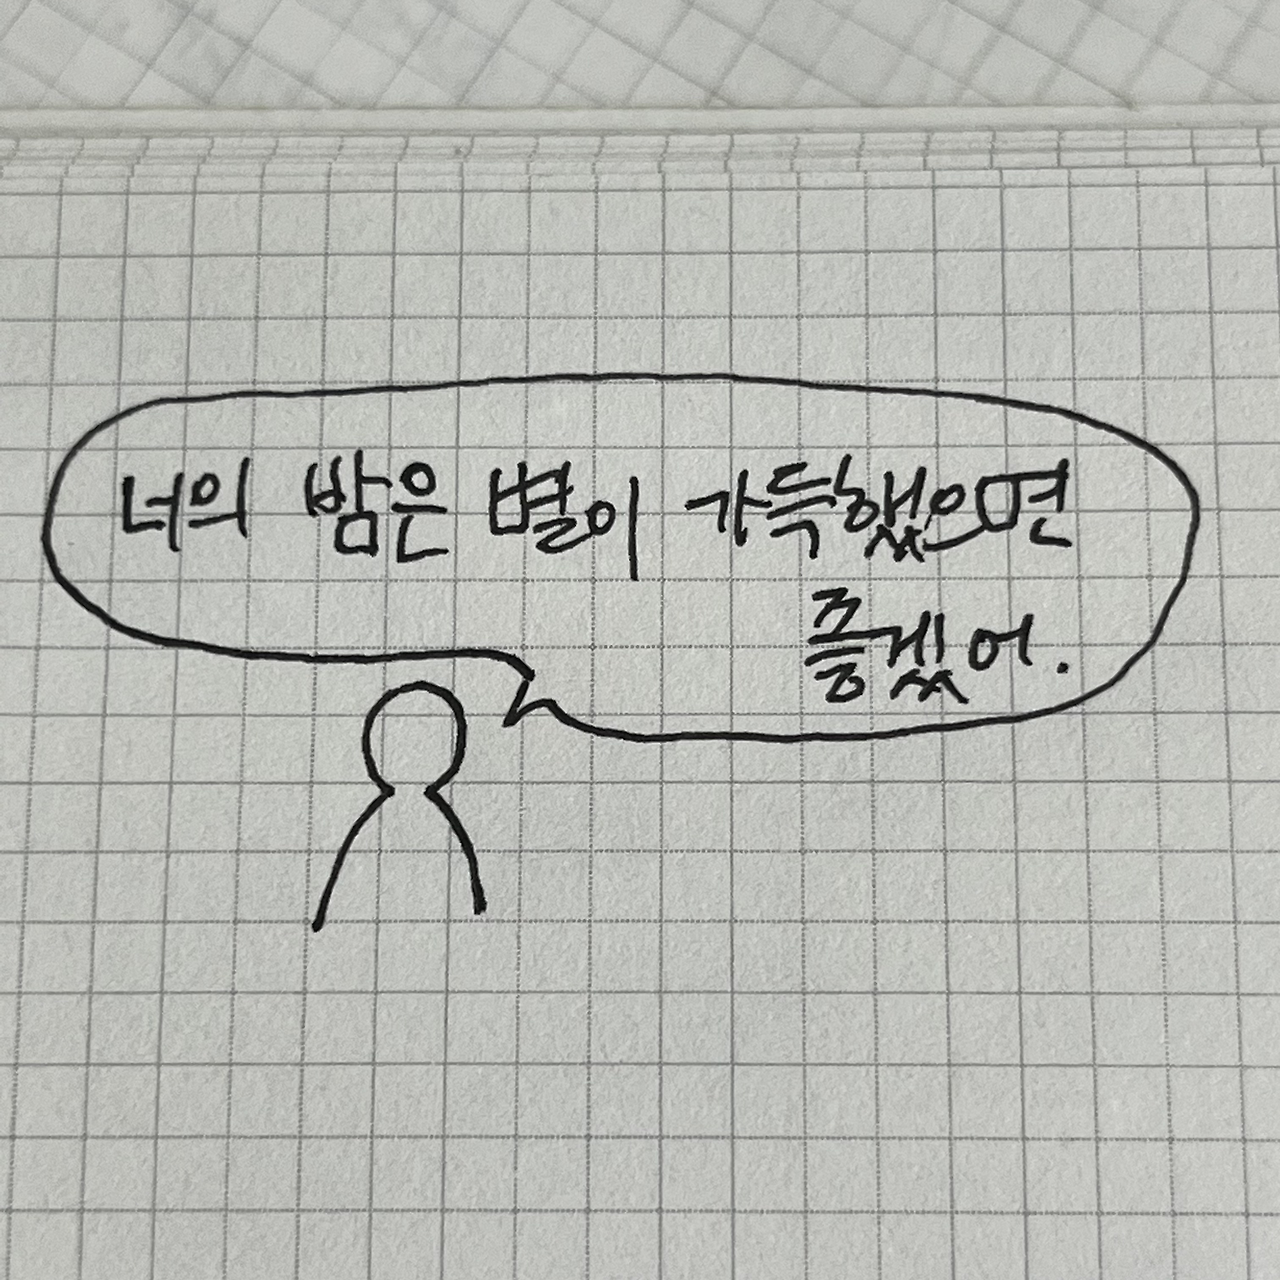 너의 밤은 별이 가득했으면
좋겠어.